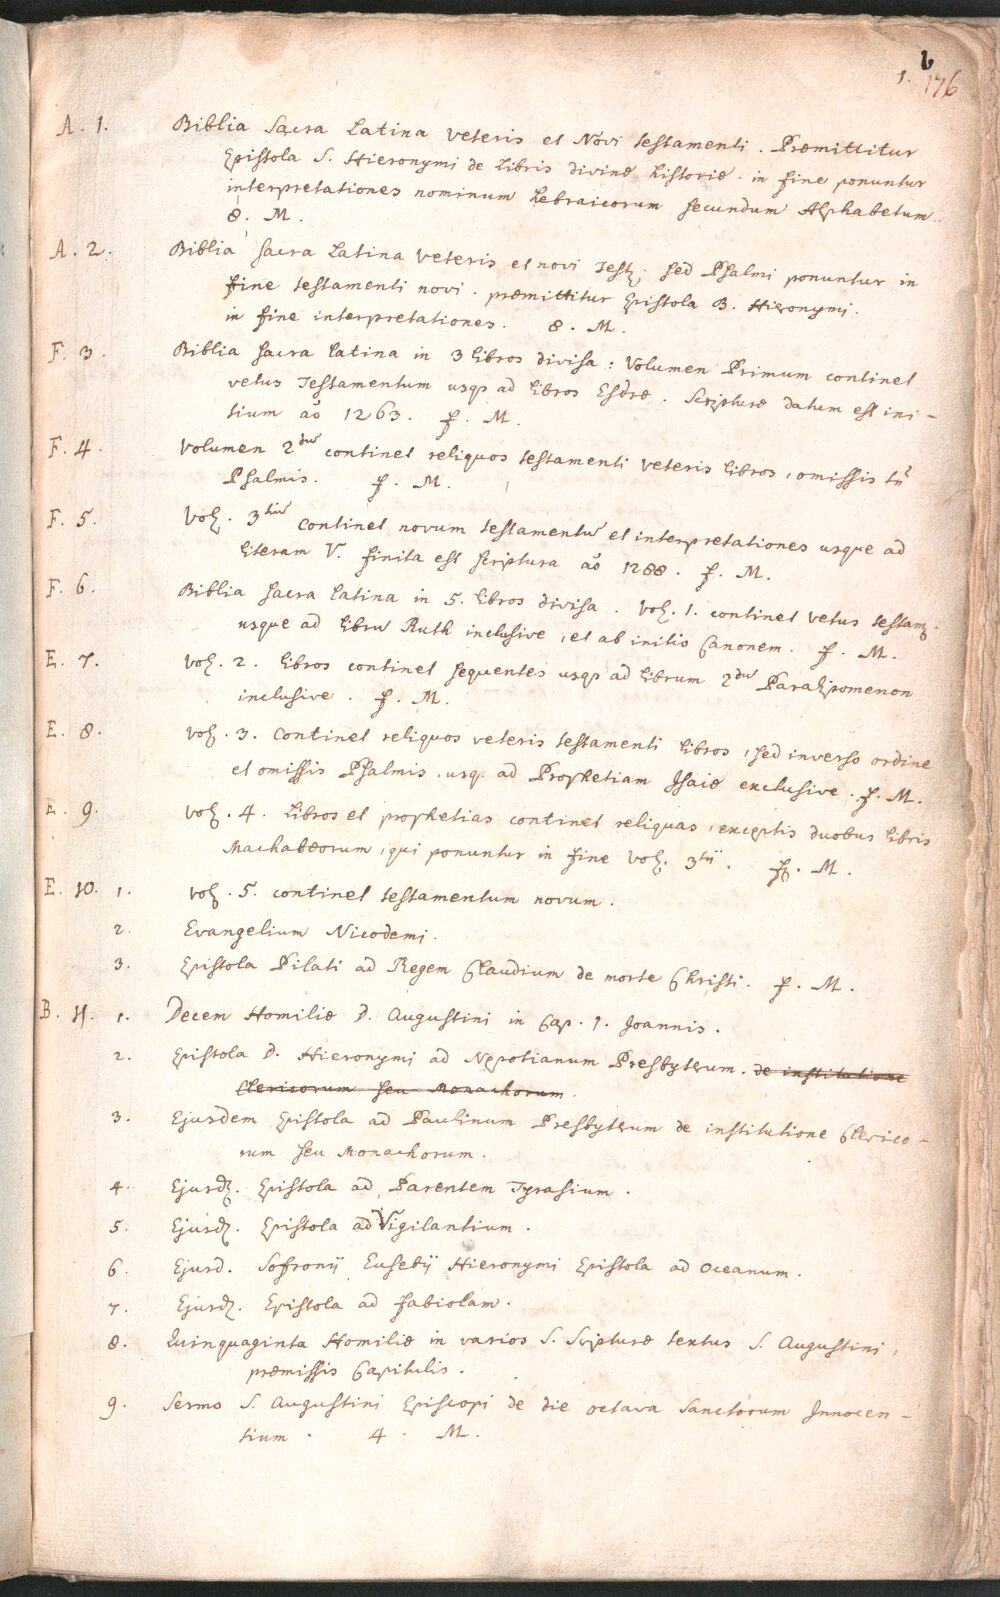 b
1. 176
A. 1. Biblia Sacra Latina veteris et Novi testamenti. Præmittitur
Epistola S. Hieronymi de Libris divinæ historiæ. in fine ponuntur
interpretationes nominum hebraicorum secundum Alphabetum.
8. M.
A. 2. Biblia sacra Latina veteris et novi Test. sed Psalmi ponuntur in
fine testamenti novi. præmittitur Epistola B. Hieronymi.
in fine interpretationes. 8. M.
F. 3. Biblia sacra latina in 3 libros divisa: Volumen Primum continet
vetus Testamentum usq, ad libros Esdræ. Scripturæ datum est ini-
tium aō 1263. f. M.
F. 4. Volumen 2dū continet reliquos testamenti veteris libros, omissis tñ
Psalmis. f. M.
F. 5. Vol. 3tiū continet novum testamentū et interpretationes usque ad
literam V. finita est scriptura aō 1288. f. M.
F. 6. Biblia sacra latina in 5. libros divisa. Vol. 1. continet vetus testam.
usque ad librū Ruth inclusive, et ab initio Canonem. f. M.
E. 7. Vol. 2. libros continet sequentes usq, ad librum 2dū Paralipomenon
inclusive. f. M.
E. 8. Vol. 3. continet reliquos veteris testamenti libros, sed inverso ordine
et omissis Psalmis, usq. ad Prophetiam Isaiæ exclusive. f. M.
E. 9. Vol. 4. Libros et prophetias continet reliquas, exceptis duobus libris
Machabæorum, qui ponuntur in fine Vol. 3tii. f. M.
E. 10. 1. Vol. 5. continet testamentum novum.
2. Evangelium Nicodemi.
3. Epistola Pilati ad Regem Claudium de morte Christi. f. M.
B. 11. 1. Decem Homiliæ D. Augustini in Cap. 1. Joannis.
2. Epistola D. Hieronymi ad Nepotianum Presbyterum. de institutione
Clericorum seu Monachorum.
3. Ejusdem Epistola ad Paulinum Presbyterum de institutione Clerico-
rum seu Monachorum.
4. Ejusd. Epistola ad Parentem Tyrasium.
5. Ejusd. Epistola ad Vigilantium.
6. Ejusd. Sofronii Eusebii Hieronymi Epistola ad Oceanum.
7. Ejusd. Epistola ad fabiolam.
8. Quinquaginta Homiliæ in varios S. Scripturæ textus S. Augustini,
præmissis Capitulis.
9. Sermo S. Augustini Episcopi de die octava Sanctorum Innocen-
tium. 4. M.